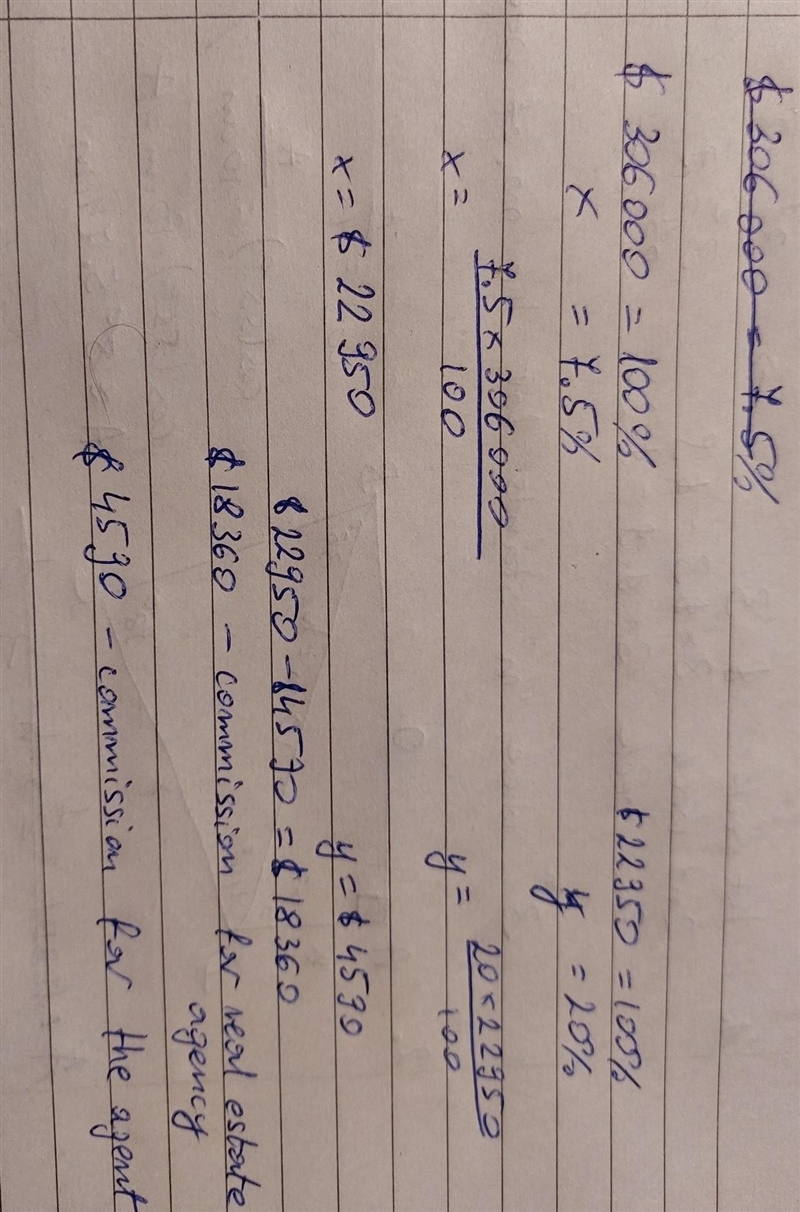 $ 306 000 = 7.5%
$ 306 000 = 100%
x = 7.5%
x = 7.5 x 306 000
100
x = $ 22 950
$ 22950 = 100%
y = 20%
y = 20 x 22950
100
y = $ 4590
$ 22950 - $4590 = $ 18360
$ 18360 - commission for real estate
agency
$ 4590 - commission for the agent